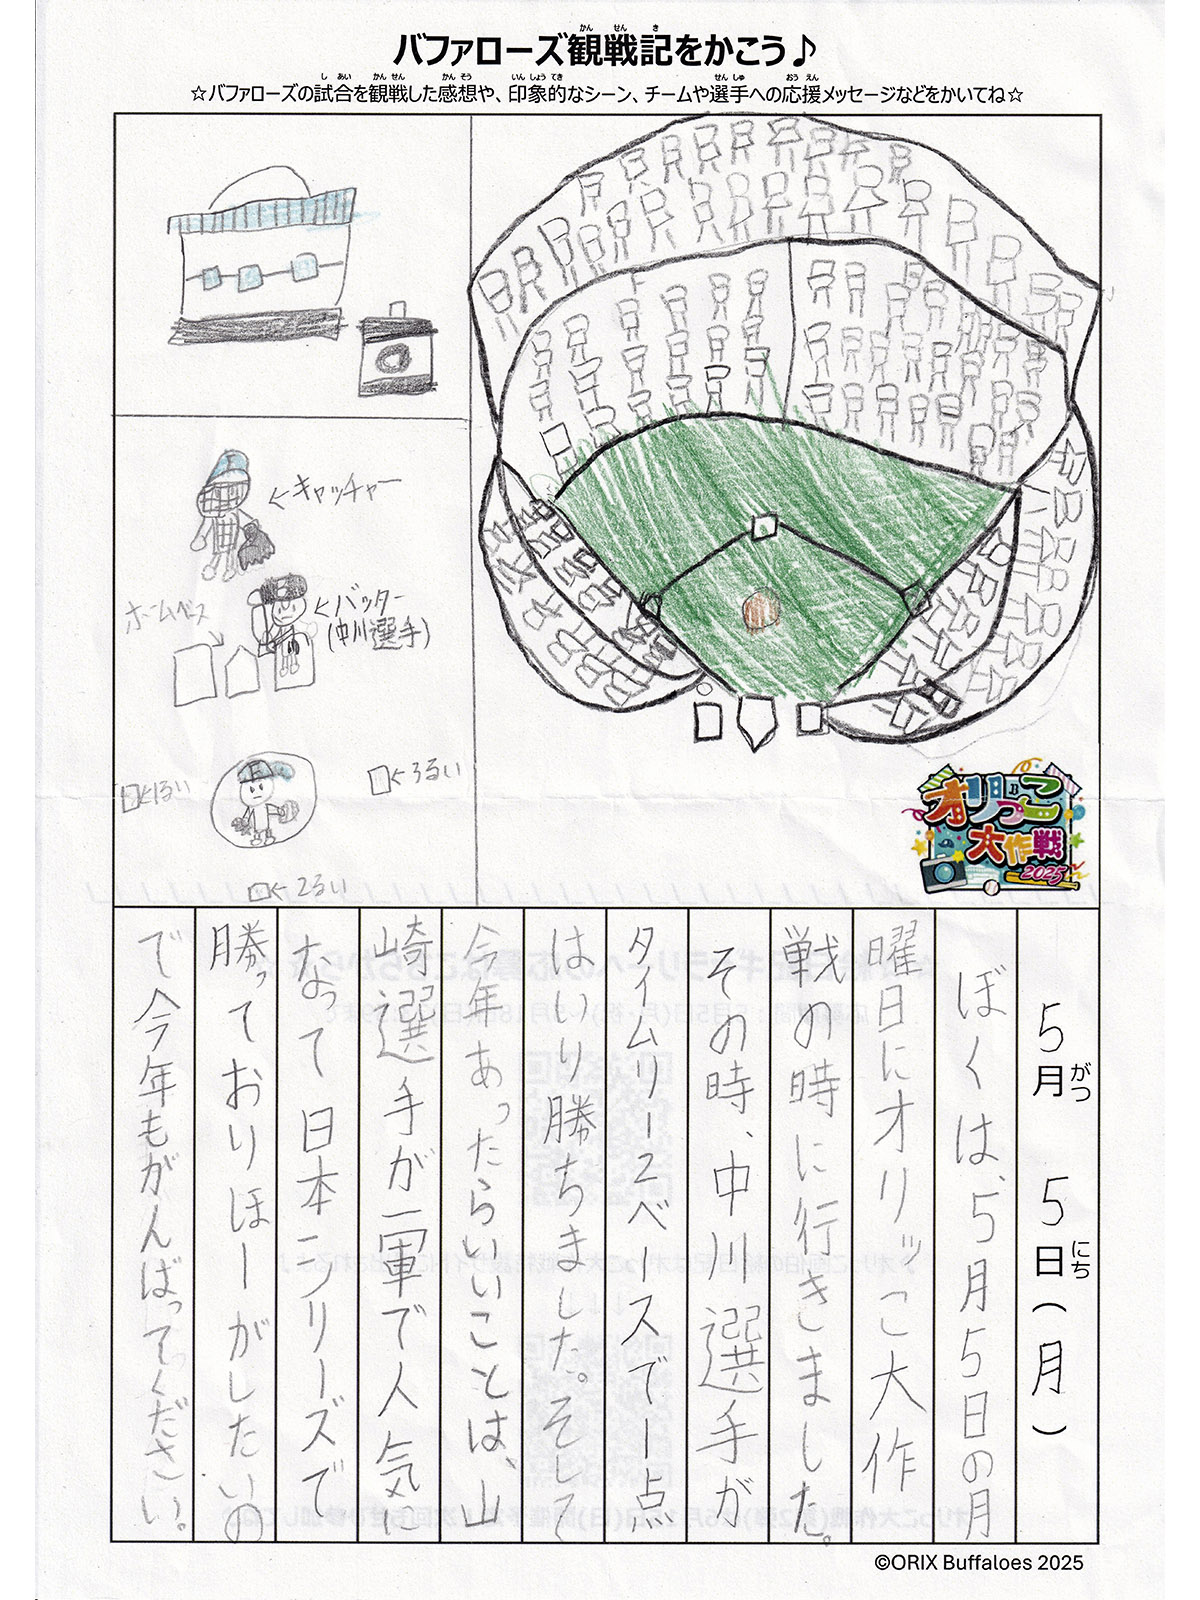 バファローズ観戦記をかこう♪
☆バファローズの試合を観戦した感想や、印象的なシーン、チームや選手への応援メッセージなどをかいてね☆
←キャッチャー
ホームベース
←バッター
(中川選手)
←1るい
←3るい
←2るい
オリっこ
大作戦
2025
5月 5日(月)
ぼくは、5月5日の月
曜日にオリッこ大作
戦の時に行きました。
その時、中川選手が
タイムリー2ベースで一点
はいり勝ちました。そして
今年あったらいいことは、山
崎選手が一軍で人気に
なって日本シリーズで
勝っておりほーがしたいの
で今年もがんばってください。
©ORIX Buffaloes 2025